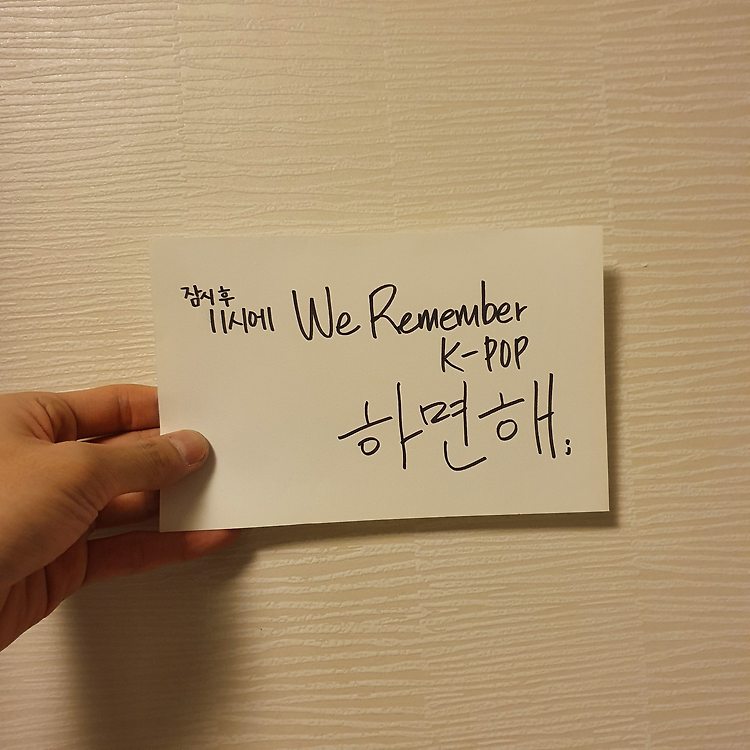 잠시 후
11시에 We Remember
K-POP
하면해;